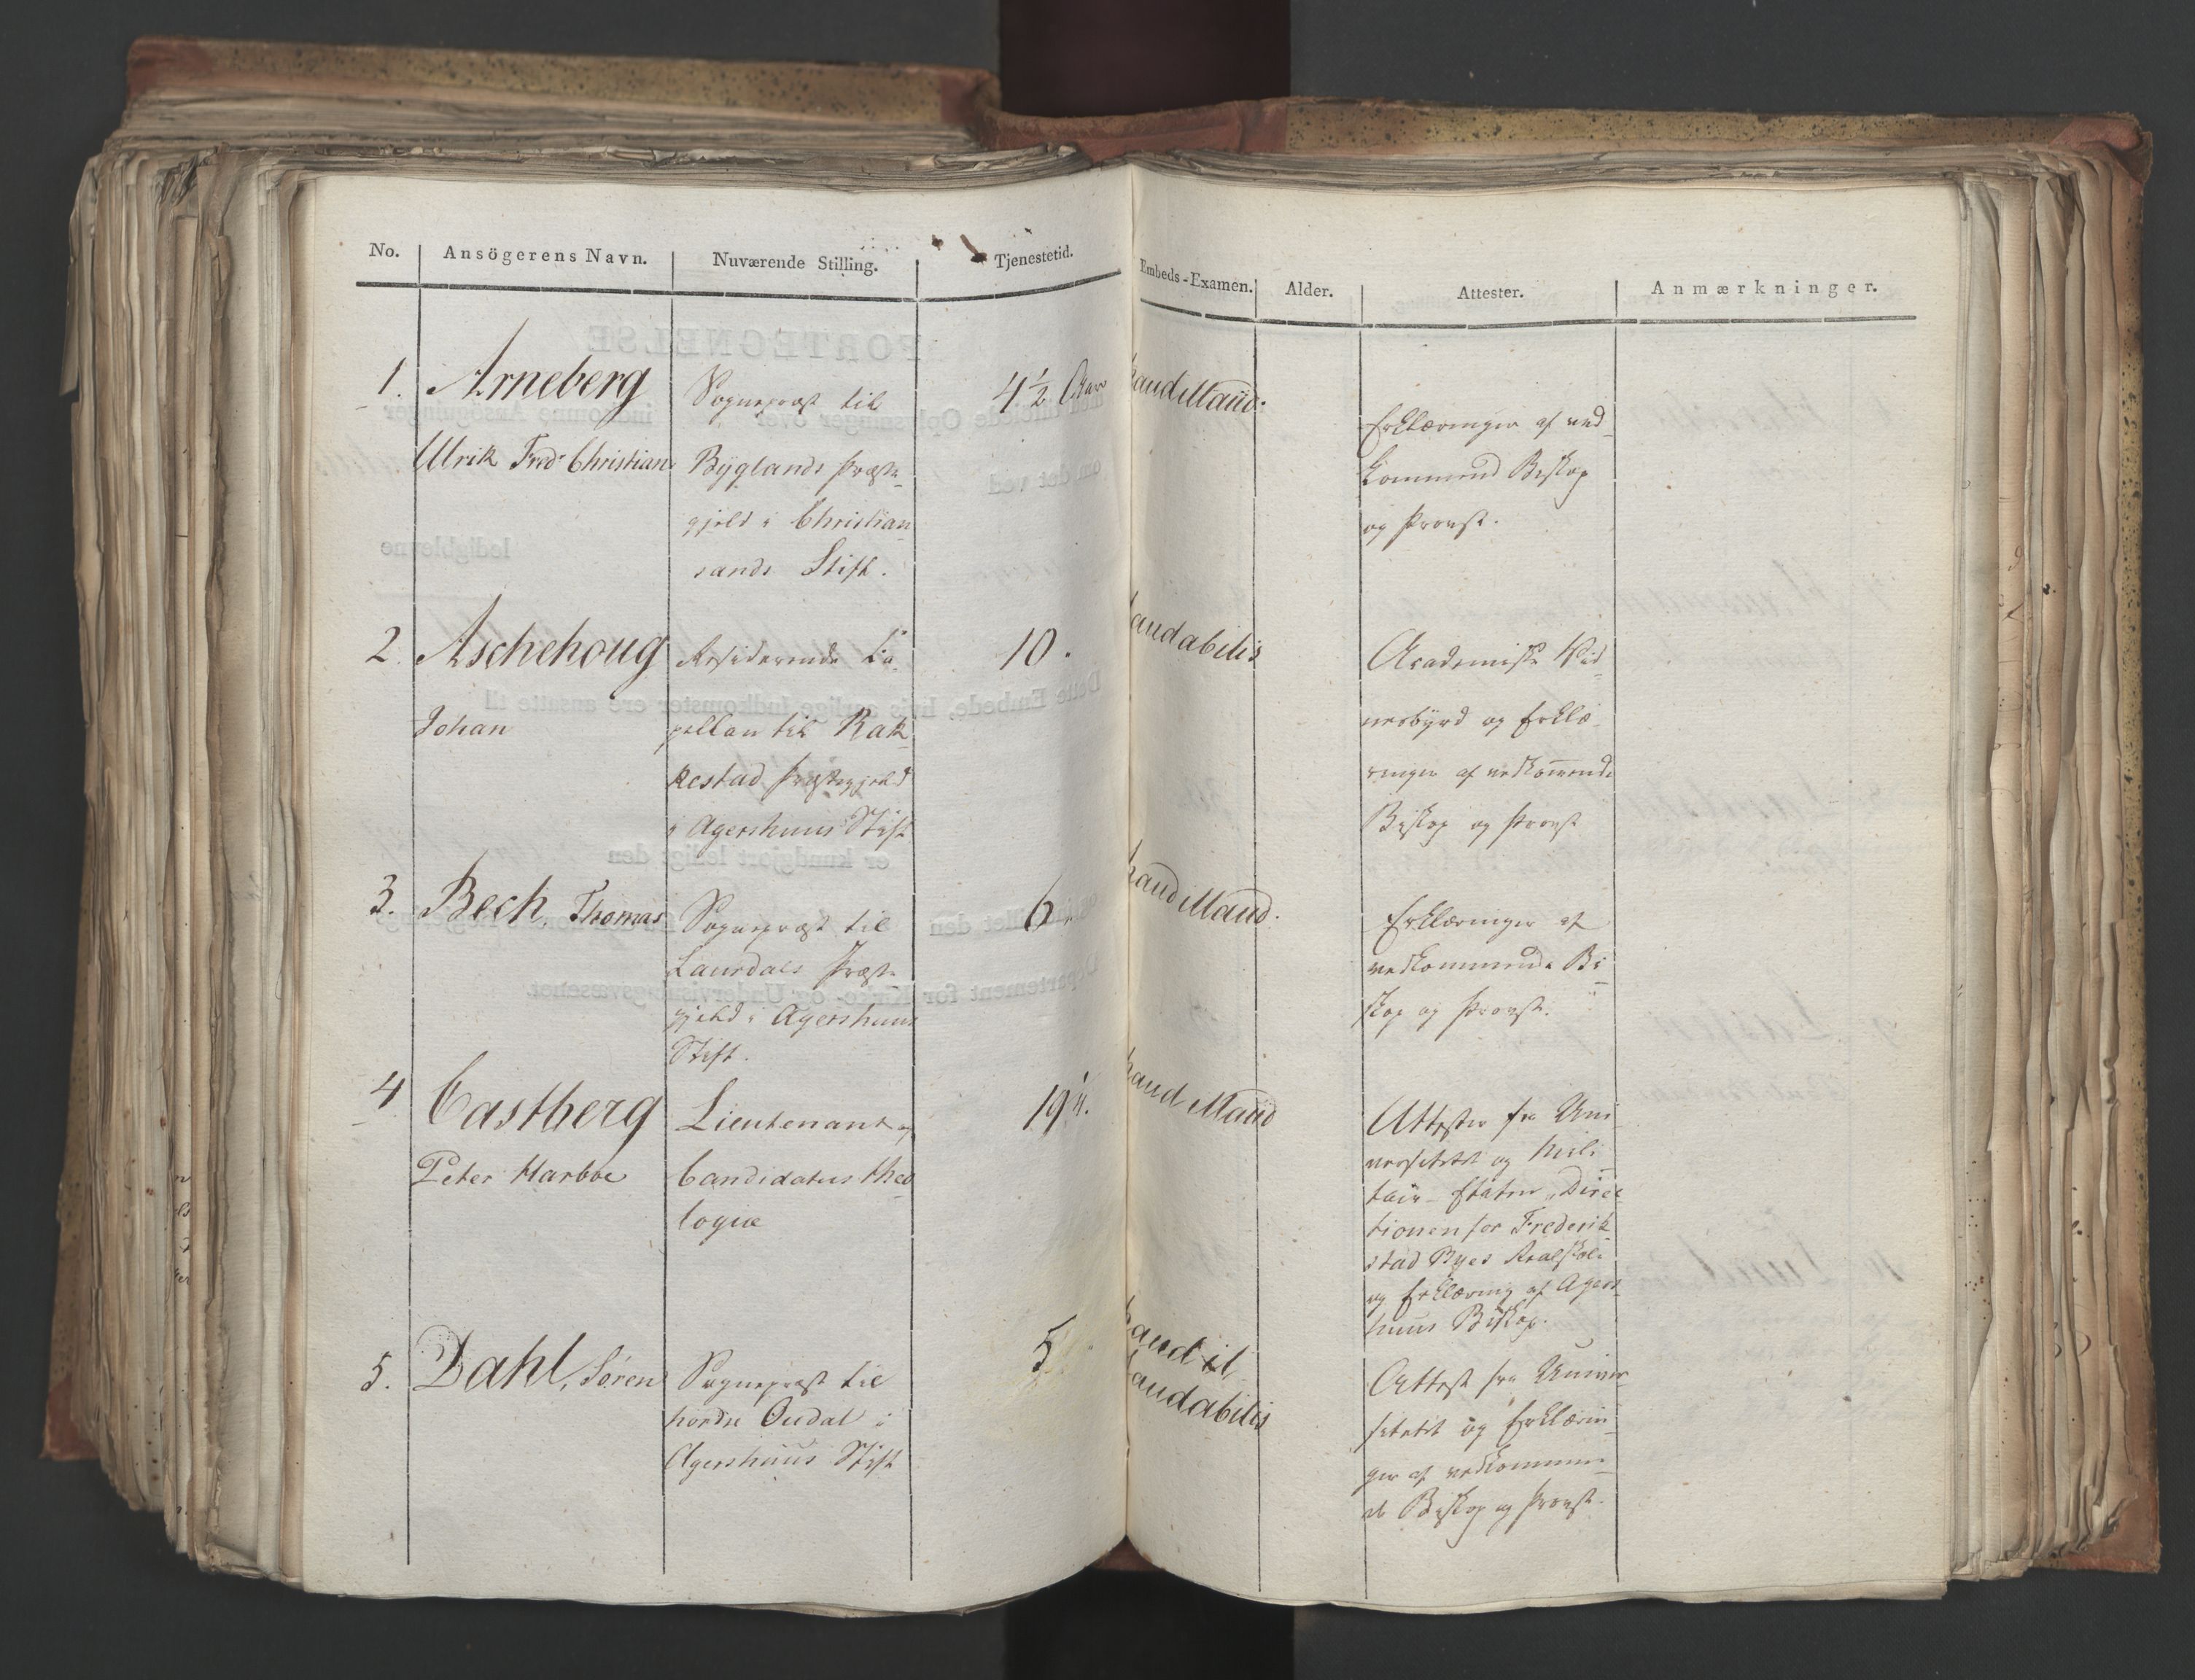 No. Ansögerens Navn. Nuværende Stilling. Tjenestetid. Embeds-Examen. Alder. Attester. Anmærkninger.
1. Arneberg
Ulrik Fredr Christian
Sognepræst til
Byglands Præste-
gjeld i Christian
sands Stift.
4 1/2 Aar
haud illaud:
Erklæringer af ved-
kommend Biskop
og Provst.
2. Aschehoug
Johan
Residerende Ca-
pellan til Rak-
kestad Præstegjeld
i Agershuus Stift
10.
laudabilis
Academiske Vid-
nesbyrd og Erklæ-
ringer af vedkom̅ende
Biskop og Provst
3. Bech, Thomas
Sognepræst til
Laurdals Præste
gjeld i Agershuus
Stift.
6.
haud illaud.
Erklæringer af
vedkommende Bi-
skop og Provst.
4 Castberg
Peter Harboe
Lieutenant og
Candidatus theo-
logiæ
19 1/4.
haud illaud
Attester fra Uni-
versitetet og Mili-
tair-Etaten, Direc-
tionen for Frederik-
stad Byes Realskole
og Erklæring af Agers-
huus Biskop.
5. Dahl, Sören
Sognepræst til
nordre Oudal i
Agershuus Stift
5
haud il
laudabilis
Attest fra Univer-
sitetet og Erklærin-
ger af vedkommen-
de Biskop og Provst.